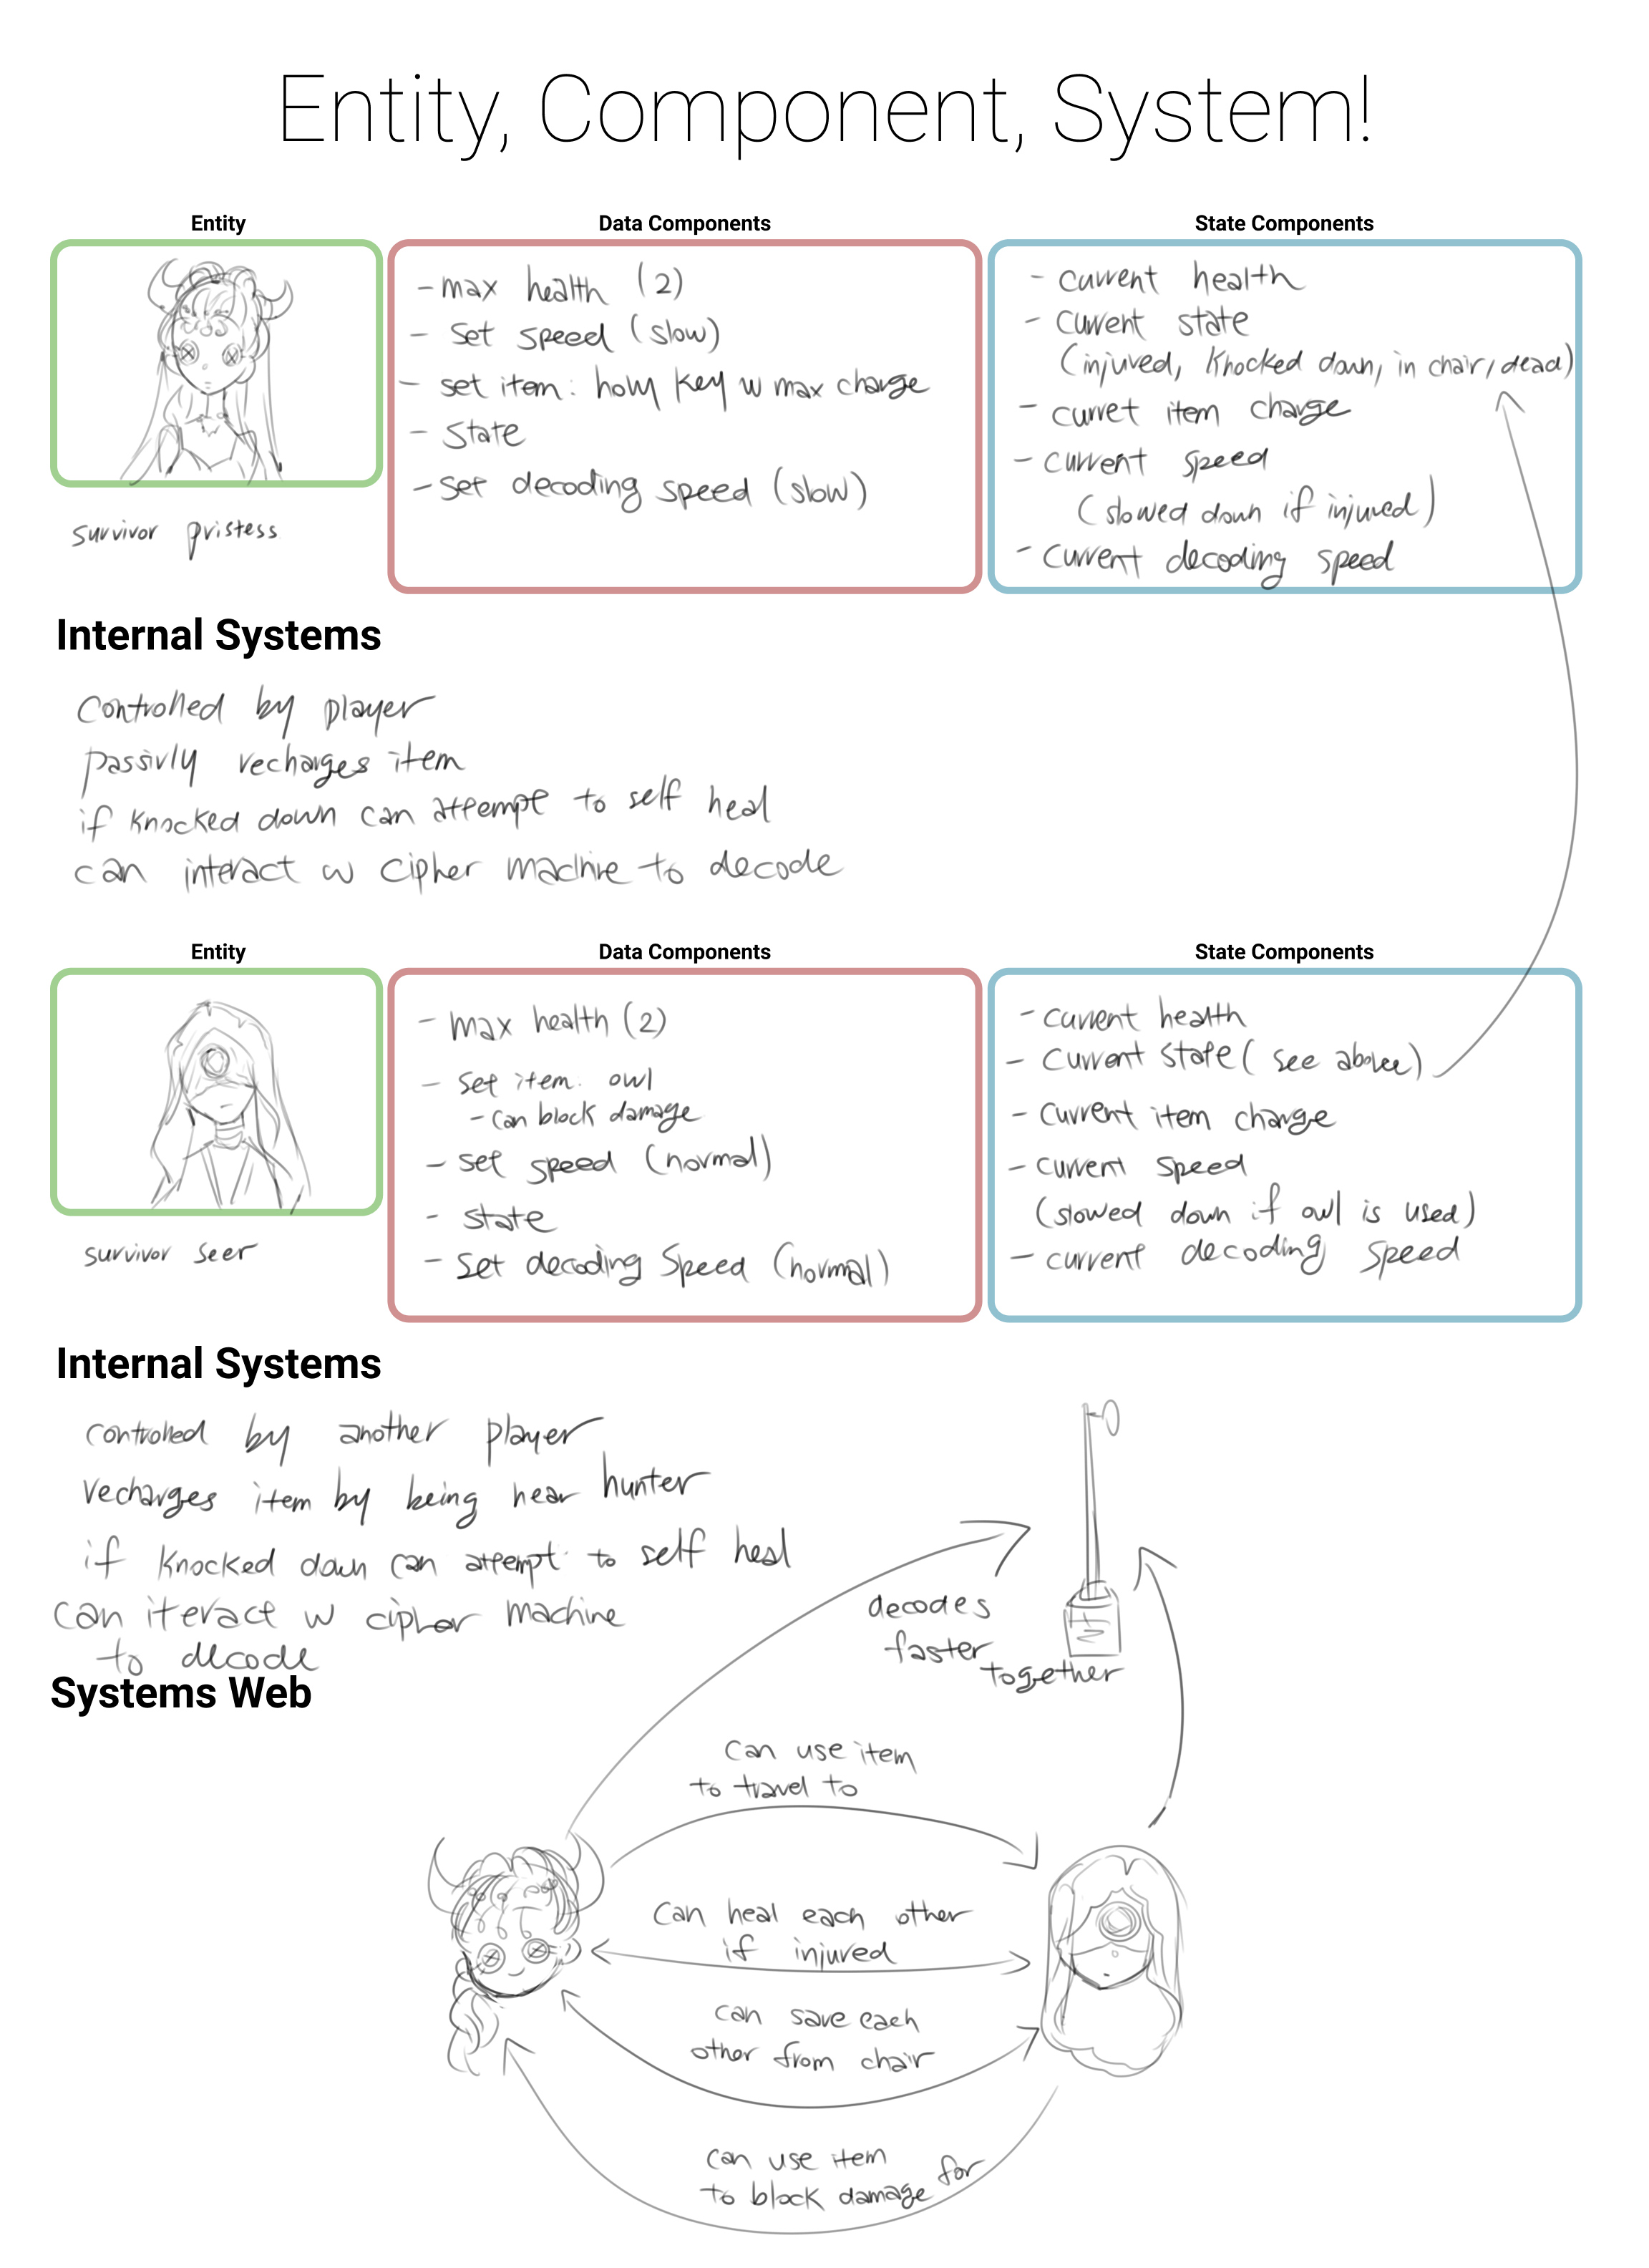 Entity, Component, System!
Entity
Data Components
State Components
- max health (2)
- set speed (slow)
- set item: holy key w max charge
- state
- set decoding speed (slow)
- current health
- current state
(injured, knocked down, in chair, dead)
- curret item charge
- current speed
(slowed down if injured)
- current decoding speed
survivor pristess
Internal Systems
controlled by player
passivly recharges item
if knocked down can attempt to self heal
can interact w cipher machine to decode
Entity
Data Components
State Components
- max health (2)
- set item: owl
- can block damage
- set speed (normal)
- state
- set decoding speed (normal)
- current health
- current state (see above)
- current item charge
- current speed
(slowed down if owl is used)
- current decoding speed
survivor seer
Internal Systems
controlled by another player
recharges item by being near hunter
if knocked down can attempt to self heal
can iteract w cipher machine
to decode
Systems Web
decodes
faster
together
can use item
to travel to
can heal each other
if injured
can save each
other from chair
can use item
to block damage for